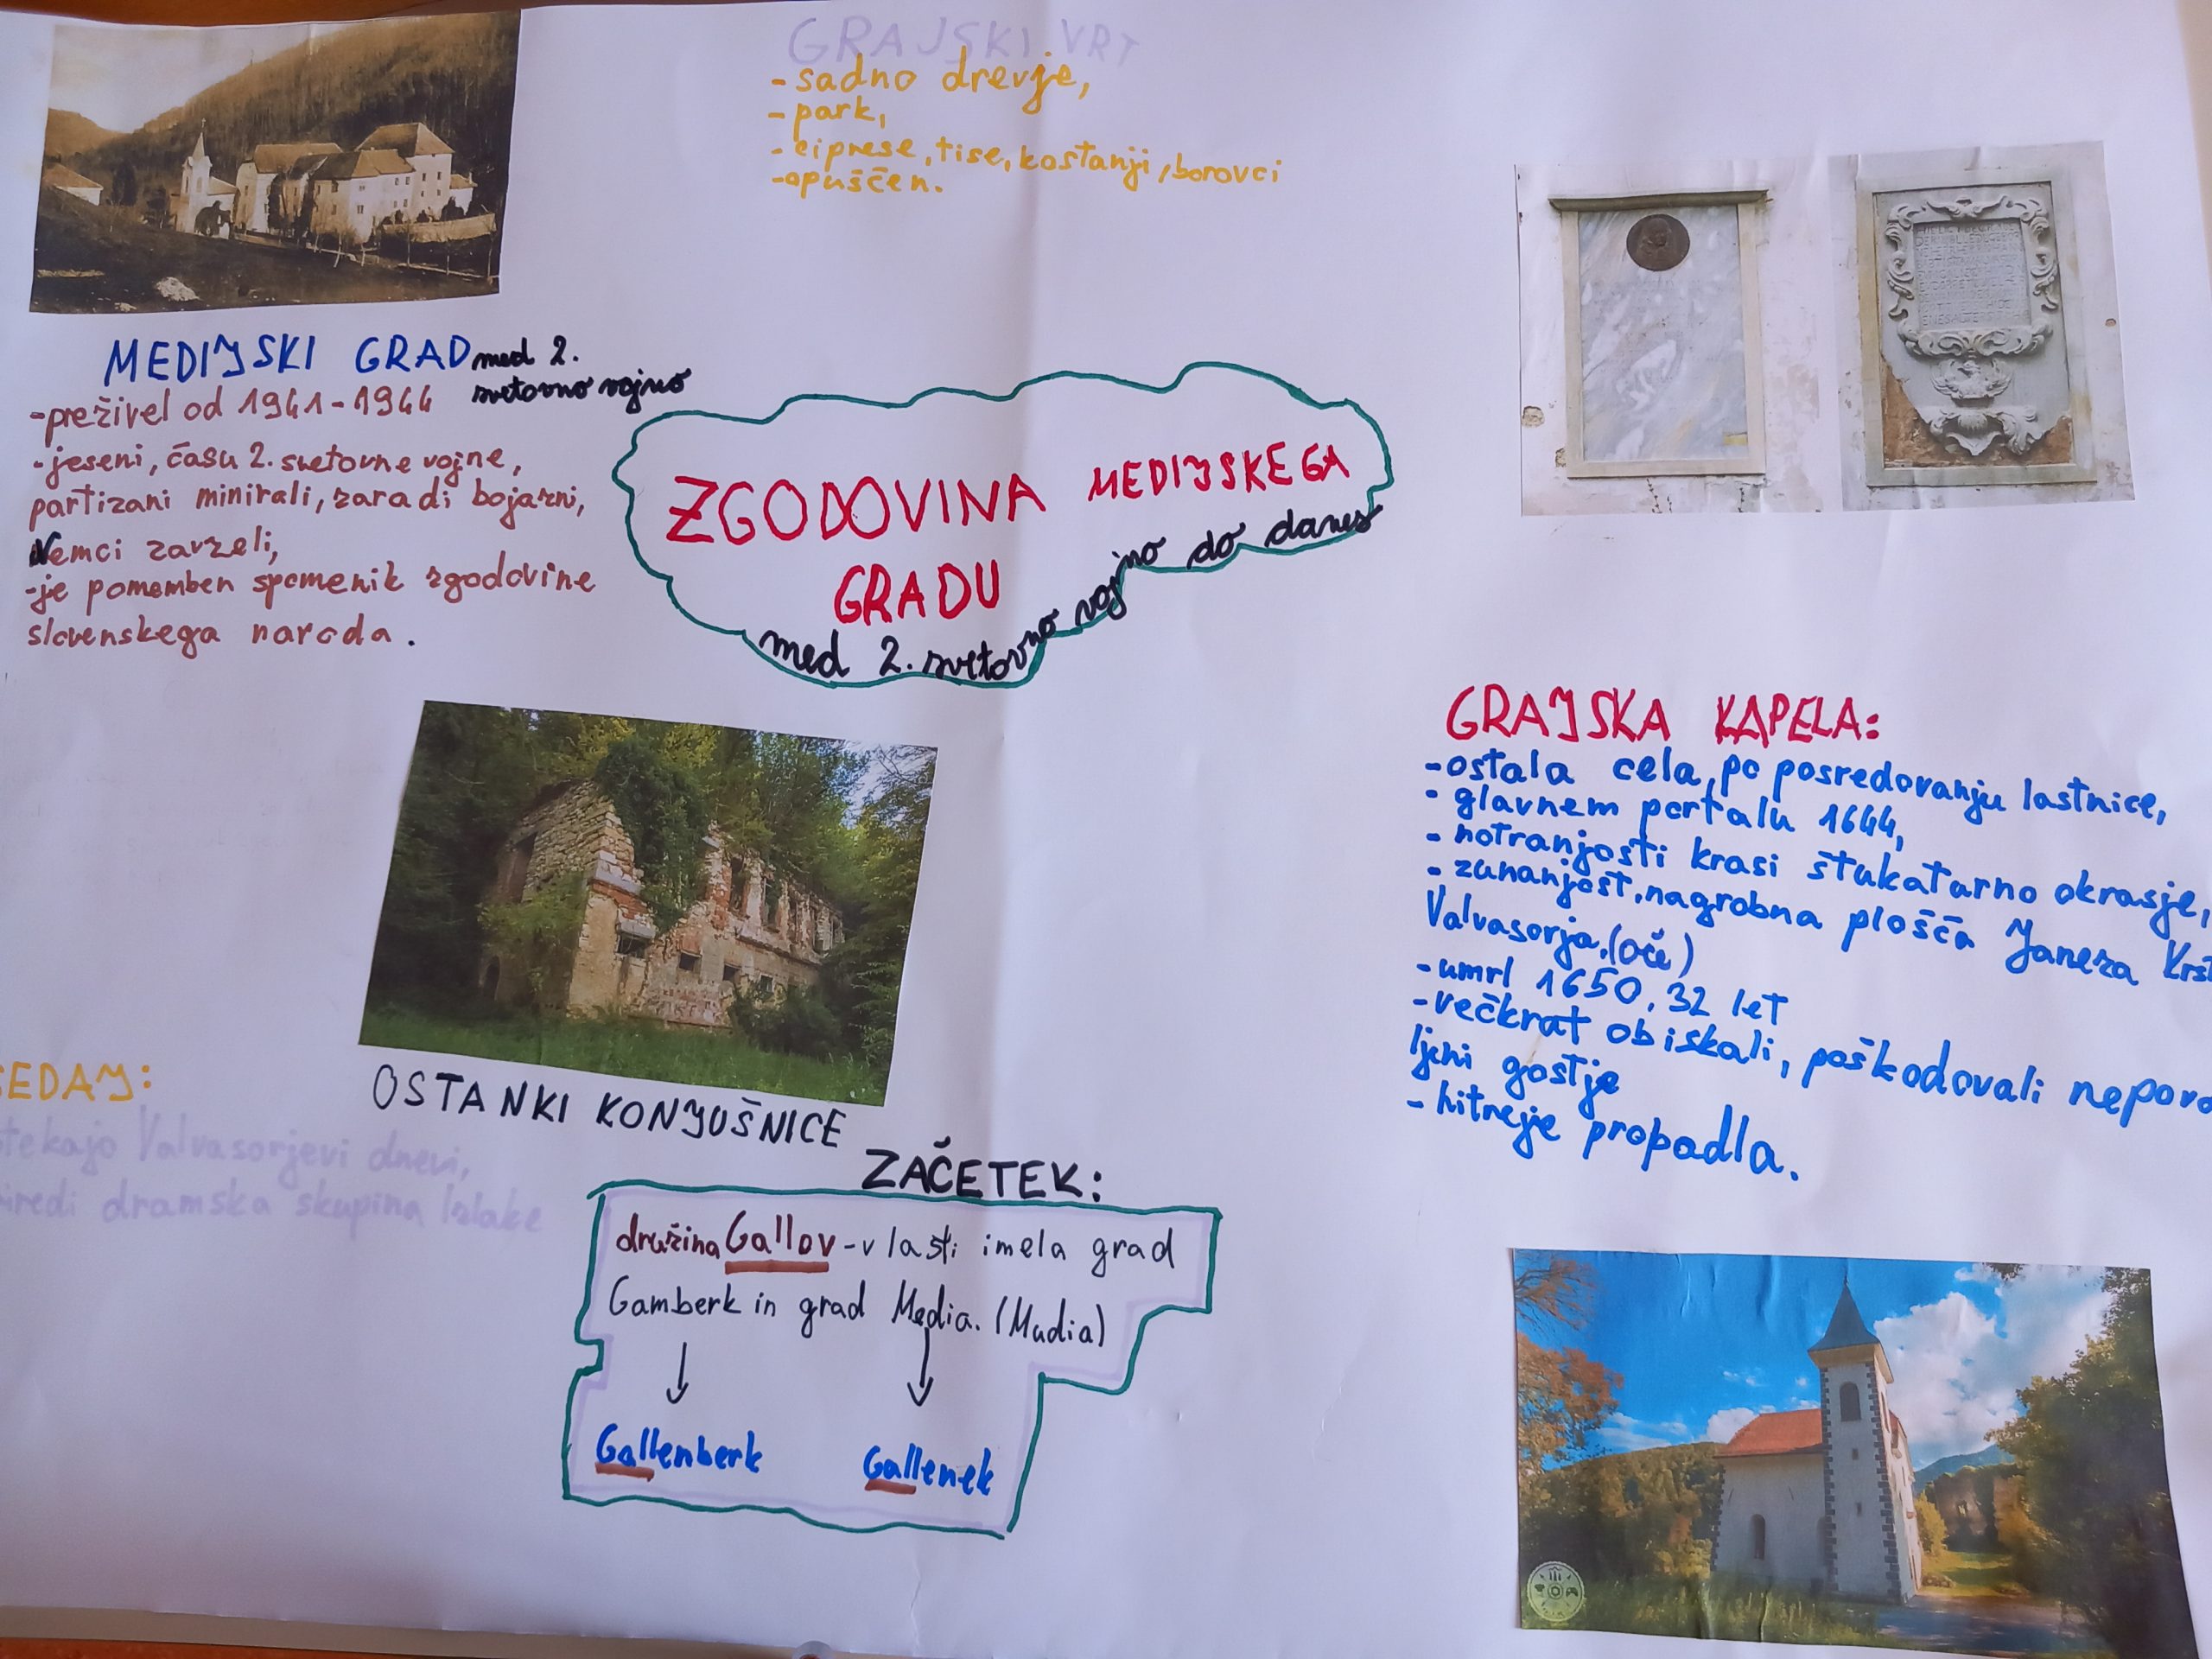 GRAJSKI VRT
- sadno drevje,
- park,
- ciprese, tise, kostanji, borovci
- opuščen.
MEDIJSKI GRAD med 2.
svetovno vojno
- preživel od 1941-1944
- jeseni, času 2. svetovne vojne,
partizani minirali, zaradi bojazni,
Nemci zavzeli,
- je pomemben spomenik zgodovine
slovenskega naroda.
ZGODOVINA MEDIJSKEGA
GRADU
med 2. svetovno vojno do danes
GRAJSKA KAPELA:
- ostala cela, po posredovanju lastnice,
- glavnem portalu 1644,
- notranjosti krasi štukaturno okrasje,
- zunanjost, nagrobna plošča Janeza Krst
Valvasorja, (oče)
- umrl 1650, 32 let
- večkrat obiskali, poškodovali nepova
ljeni gostje
- hitreje propadla.
OSTANKI KONJUŠNICE
SEDAJ:
tekajo Valvasorjevi dnevi,
iredi dramska skupina Izlake
ZAČETEK:
družina Gallov - v lasti imela grad
Gamberk in grad Media. (Mudia)
Gallenberk Gallenek